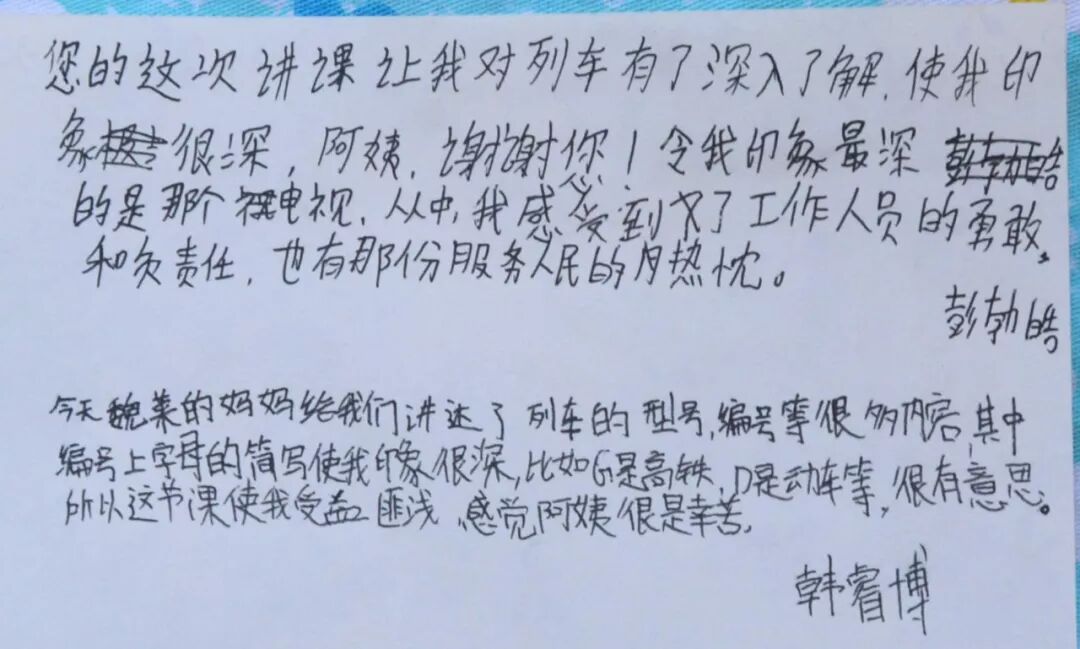 您的这次讲课让我对列车有了深入了解,使我印
象很深,阿姨,谢谢你!令我印象最深
的是那个电视,从中,我感受到了工作人员的勇敢,
和负责任,也有那份服务人民的热忱。
彭勃皓
今天魏莱的妈妈给我们讲述了列车的型号,编号等很多内容,其中
编号上字母的简写使我印象很深,比如G是高铁,D是动车等,很有意思。
所以这节课使我受益匪浅,感觉阿姨很是辛苦,
韩睿博